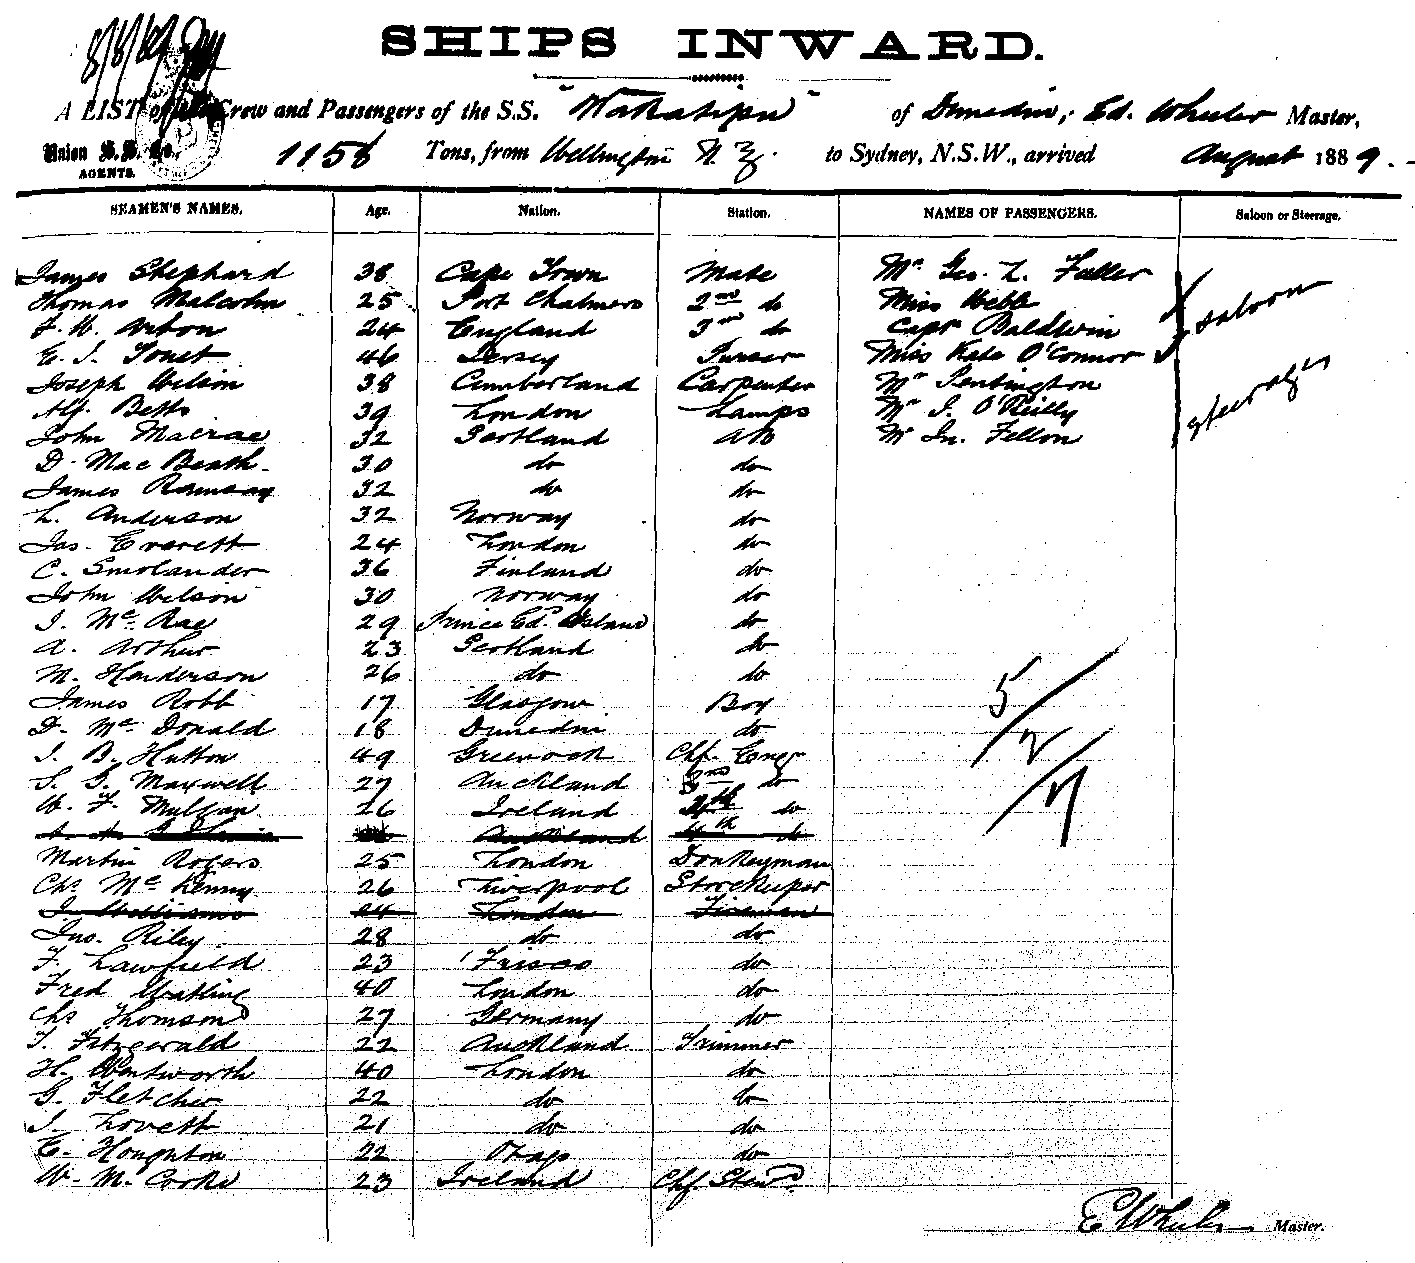 8/8/89
SHIPS INWARD.
A LIST of the Crew and Passengers of the S.S. "Wakatipu" of Dunedin, Ed. Wheeler Master,
Union S.S. Co., 1158 Tons, from Wellington N.Z. to Sydney, N.S.W., arrived August 1889.
AGENTS.
SEAMEN'S NAMES. Age. Nation. Station. NAMES OF PASSENGERS. Saloon or Steerage.
James Shephard 38 Cape Town Mate Mr. Geo. L. Fuller
Thomas Malcolm 25 Port Chalmers 2nd do Miss Webb Saloon
F. W. Arbon 24 England 3rd do Capt Baldwin
E. J. 46 Jersey Purser Miss Kate O'Connor
Joseph Wilson 38 Cumberland Carpenter Mr Pentington
Alf. Betts 39 London Lamps Mr J. O'Reilly Steerage
John Macrae 32 Scotland AB Mr Jn. Fellon
D. MacBeath 30 do do
James Ramsay 32 do do
L. Anderson 32 Norway do
Jas. Everett 24 London do
C. Smolander 36 Finland do
John Wilson 30 Norway do
J. McRae 29 Prince Ed. Island do
A. Arthur 23 Scotland do
M. Henderson 26 do do
James Robb 17 Glasgow Boy
D. McDonald 18 Dunedin do
J. B. Hutton 49 Greenock Chf. Engr
S. G. Maxwell 27 Auckland do
W. F. Mulgan 26 Ireland do
Auckland 4th do
Martin Rogers 25 London Donkeyman
Chs McKenny 26 Liverpool Storekeeper
J. Williams 24 London Fireman
Jno. Riley 28 do do
F. Lawfield 23 'Frisco do
Fred Watling 40 London do
Chs Thomson 27 Germany do
T. Fitzgerald 22 Auckland Trimmer
H. Wentworth 40 London do
G. Fletcher 22 do do
J. Lovett 21 do do
E. Houghton 22 Otago do
W. M. Corke 23 Ireland Chf Stewd.
5/2/7
E Wheeler Master.